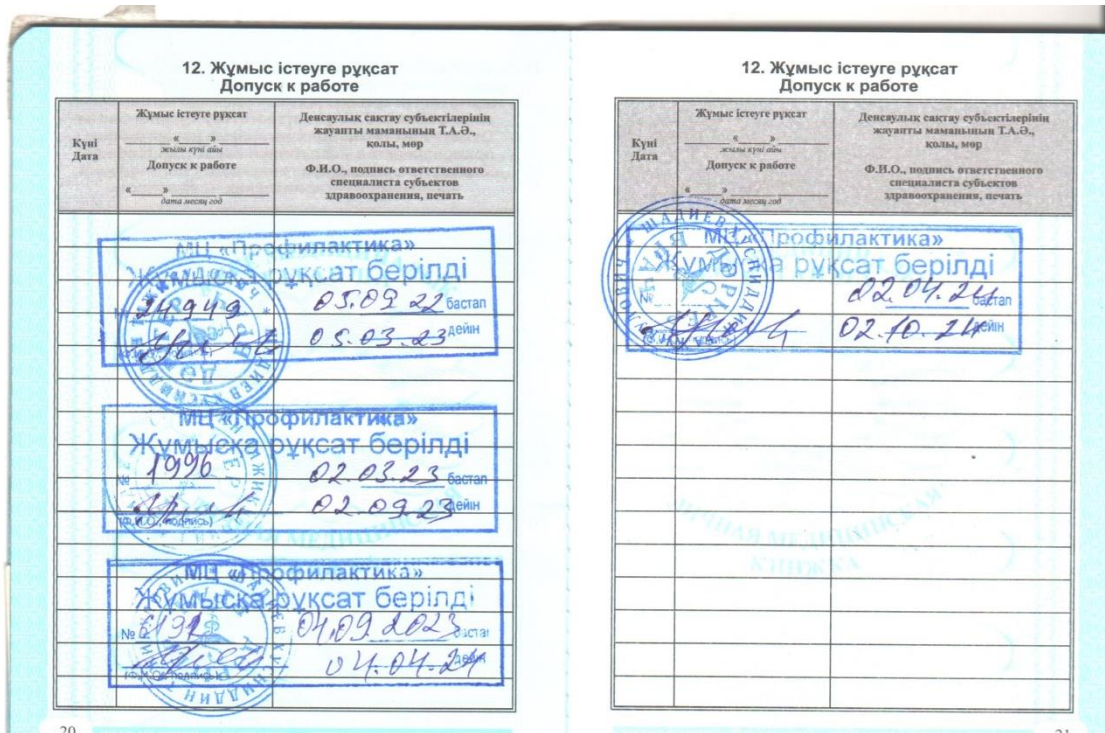 12. Жұмыс істеуге рұқсат
Допуск к работе
Күні
Дата
Жұмыс істеуге рұқсат
« »
жылы күні айы
Допуск к работе
« »
дата месяц год
Денсаулық сақтау субъектілерінің
жауапты маманының Т.А.Ә.,
қолы, мөр
Ф.И.О., подпись ответственного
специалиста субъектов
здравоохранения, печать
МЦ «Профилактика»
Жұмысқа рұқсат берілді
24949 05.09 22 бастап
05.03-23 дейін
МЦ «Профилактика»
Жұмысқа рұқсат берілді
№ 1996 02.03.23 бастап
02.09.23 дейін
(Ф.И.О., подпись)
МЦ «Профилактика»
Жұмысқа рұқсат берілді
№ 04.09.2023 бастап
04.04.24 дейін
(Ф.И.О., подпись)
20
12. Жұмыс істеуге рұқсат
Допуск к работе
Күні
Дата
Жұмыс істеуге рұқсат
« »
жылы күні айы
Допуск к работе
« »
дата месяц год
Денсаулық сақтау субъектілерінің
жауапты маманының Т.А.Ә.,
қолы, мөр
Ф.И.О., подпись ответственного
специалиста субъектов
здравоохранения, печать
МЦ «Профилактика»
Жұмысқа рұқсат берілді
№ 02.04.24 бастап
02.10.24 дейін
ЛИЧНАЯ МЕДИЦИНСКАЯ
КНИЖКА
21